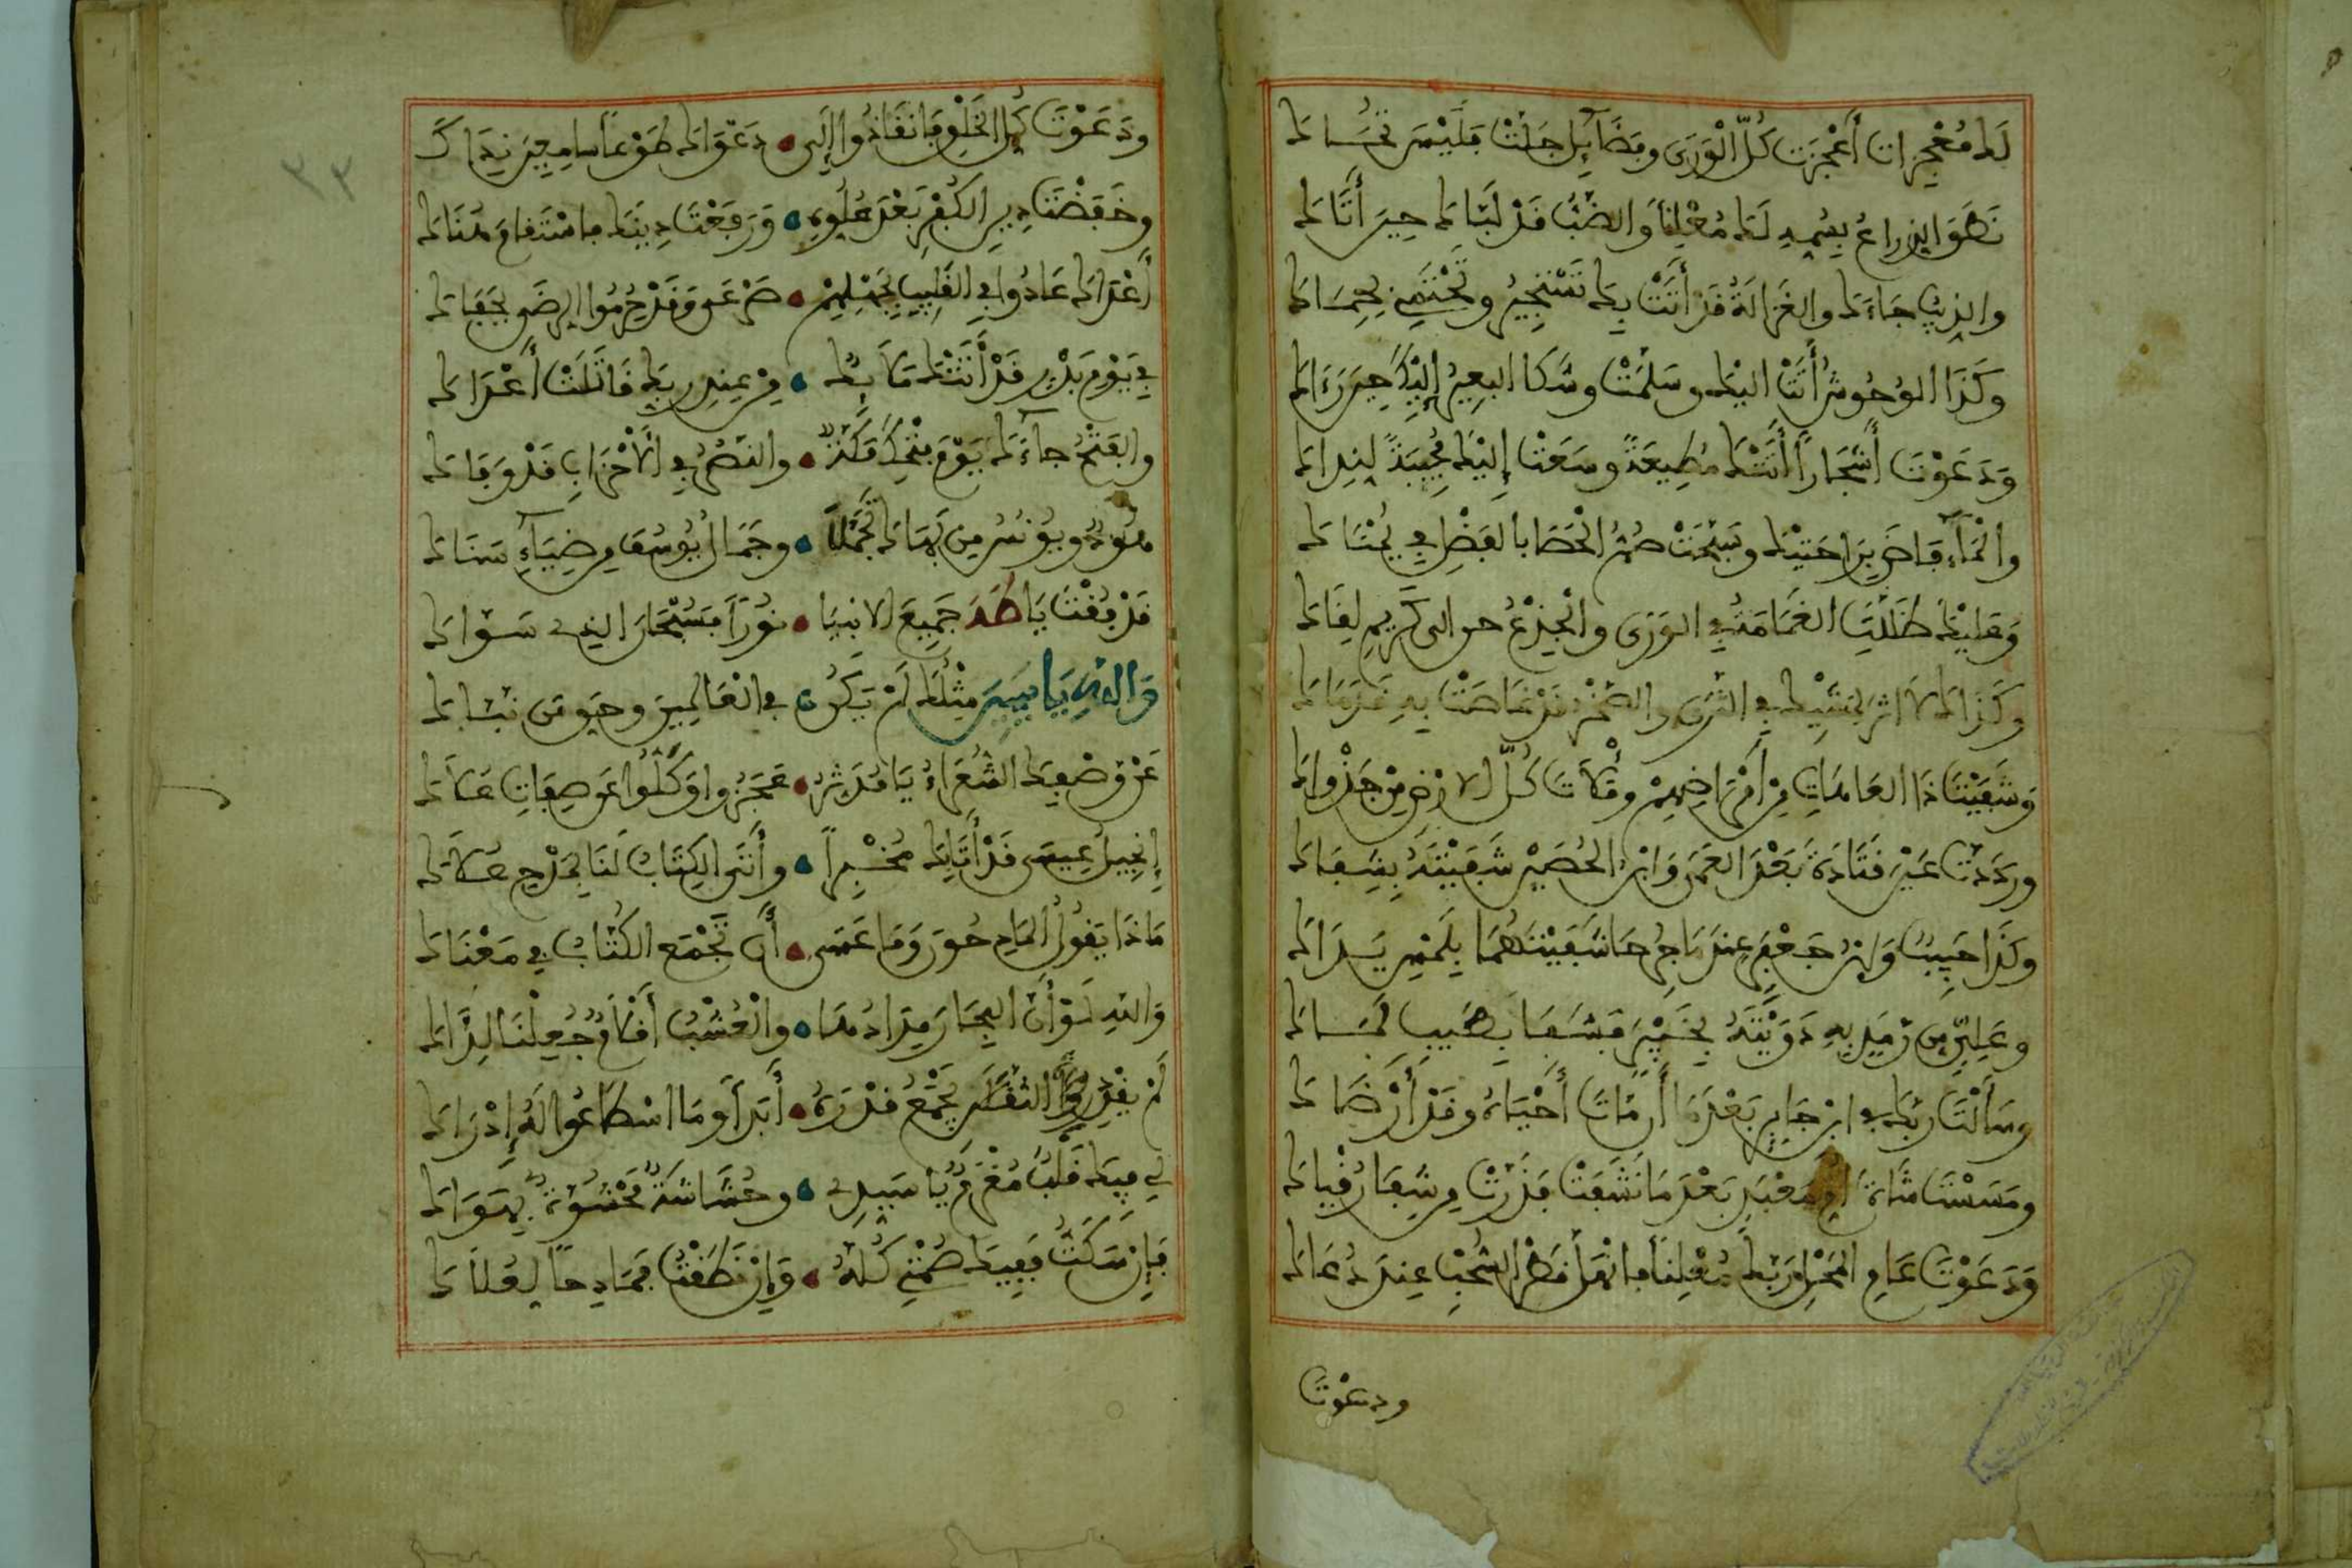 لَكَ مُعْجِزات أَعْجَزَت كُلَّ الْوَرَى وفَضَآيِل جَلَّتْ فَلَيْسَ تُحَــاكَ
نَطَقَ الذِراعُ بِسُمِهِ لَكَ مُعْلِناً وَالضَّبُّ قَدْ لَبَّاكَ حِينَ أَتَاكَ
والذِيبُ جَاءَكَ والغَزالَةُ قَدْ أَتَتْ بِكَ تَسْتَجِيرُ وتَحْتَمِي بِحِمَـاكَ
وَكَذَا الوُحُوشُ أَتَتْ اليْكَ وسَلمَتْ وشَكَا البعِيرُ إِلَيْكَ حِينَ رَءَاكَ
وَدَعَوْتَ أَشْجَاراً أَتَتْكَ مُطِيعَةً وسَعَتْ إِلَيْكَ مُجِيبَةً لِنِدَاكَ
والْمَآءُ فَاضَ بِرَاحَتَيْكَ وسَبَّحَتْ صُمُّ الْحَصَا بالفَضْلِ فِي يُمْنَاكَ
وَعَليْكَ ظَلَّلَتِ الغَمَامَةُ فِي الوَرَى والْجِذْعُ حن الى كَرِيمِ لِقَاكَ
وَكَذَاكَ لاَ اثر لِمَشْيِكَ فِي الثَّرَى والصَّخْرُ قَدْ غَاصَتْ بِهِ قَدَمَاكَ
وَشَفَيْتَ ذَا العَاهَاتِ مِنْ أَمْرَاضِهِمْ ومَلأْتَ كُلَّ الارْضِ مِن جَدْوَاكَ
ورَدَدْتَ عَيْنَ قَتَادَةَ بَعْدَ العَمَى وَابْنُ الحُصَيْنِ شَفَيْتَهُ بِشِفَـاكَ
وكَذَا حَبِيبٌ وَابْنُ عَفْرَ عِندَ مَا جُرِحَا شَفَيْتَهُمَا بِلَمْسِ يَـدَاكَ
وعَلِيٌّ مِن رَمَدٍ بِهِ دَوَيْتَهُ بِخَيْبَرَ فَشَفَا بِطِيبِ لَمَــاكَ
وسَأَلْتَ رَبَّكَ فِي ابْنِ جَابِرِ بَعْدَمَا أَن مَاتَ أَحْيَاهُ وقَدْ أَرْضَاكَ
ومَسَسْتَ شَاةَ أُمِّ مَعْبَدِ بَعْدَمَا نَشَفَتْ فَدَرَّتْ مِن شِفَا رُقْيَاكَ
وَدَعَوْتَ عَامَ الْمَحْلِ رَبَّكَ مُعْلِناً فانْهَلَّ قَطْرُ السُّحْبِ عِندَ دُعَاكَ
ودعوْتَ
٣٣
ودَعَوْتَ كُلَّ الخَلْقِ فانقَادُوا إِلَى دَعْوَاكَ طَوْعاً سامِعِينَ نِدَاكَ
وخَفَضْتَ دِينَ الكُفْرِ بَعْدَ عُلُوِّهِ وَرَفَعْتَ دِينَكَ فاسْتَقَامَ هُنَاكَ
أَعْدَاكَ عَادُوا فِي القَلِيبِ بِجَهْلِهِمْ صَرْعَى وَقَدْ حُرِمُوا الرِضَى بِجَفَاكَ
فِي يَوْمِ بَدْرٍ قَدْ أَتَتْكَ مَلآئِكٌ مِنْ عِندِ رَبِّكَ قَاتَلَتْ أَعْدَاكَ
والفَتْحُ جاءَكَ يَوْمَ فَتْحِكَ مَكَّةَ والنَصْرُ فِي الْأَحْزَابِ قَدْ وَفَاكَ
هُودٌ ويُونُسُ مِن بَهَاكَ تَجَمَّلاَ وجَمَالُ يُوسُفَ مِن ضِيَاءِ سَنَاكَ
قَدْ فُقْتَ يَا طَهَ جَمِيعَ الانبِيَا نُوراً فَسُبْحَانَ الذِي سَـوَّاكَ
وَاللهِ يَا يَسِينَ مِثْلُكَ لَمْ يَكُن فِي العَالَمِينَ وحَقِّ مَن نَبَّـاكَ
عَنْ وَصْفِكَ الشُّعَرَاءُ يَا مُدَثِّرُ عَجَزُوا وَكَلُّوا عَن صِفَاتِ عُلاَكَ
إِنجِيلُ عِيسَى قَدْ أَتَى بِكَ مُخْبِراً وأَتَى الكِتَابُ لَنَا بِمَدْحِ حُـلاَكَ
مَاذَا يَقُولُ المَادِحُونَ وَمَا عَسَى أَن تَجْمَعَ الكُتَّابُ فِي مَعْنَاكَ
وَاللهِ لَوْ أَنَّ البِحَارَ مِدَادُهُمَا والْعُشْبُ أَقْلاَمٌ جُعِلْنَ لِذَاكَ
لَمْ يَقْدِرِ الثَقَلاَنِ تَجْمَعُ قَدْرَهُ أَبَداً وَمَا اسْطَاعُوا لَهُ إِدْرَاكَ
لِي فِيكَ قَلْبٌ مُغْرَمٌ يَا سَيِّدِي وحُشَاشَةٌ مَحْشُوَّةٌ بِهَوَاكَ
فَإِن سَكَتُّ فَفِيكَ صُمْتِي كُلُّهُ وَإِن نَطَقْتُ فمَادِحاً لِعُلاَكَ